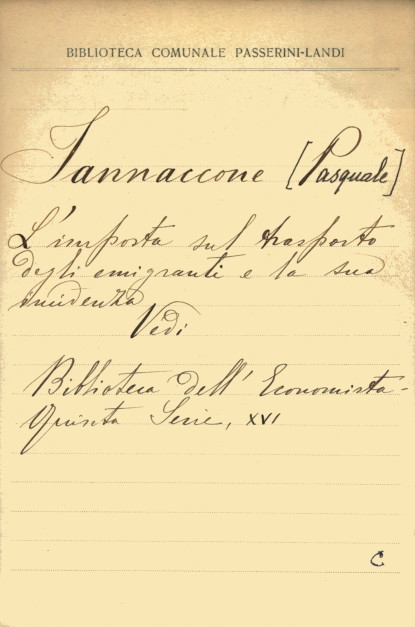 BIBLIOTECA COMUNALE PASSERINI-LANDI
Jannaccone [Pasquale]
L'imposta sul trasporto
degli emigranti e la sua
incidenza
Vedi
Biblioteca dell'Economista -
Quinta Serie, XVI
C